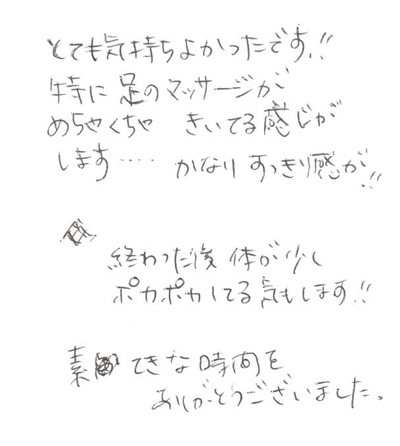 とても気持ちよかったです!!
特に足のマッサージが
めちゃくちゃ きいてる感じが
します…… かなりすっきり感が!!
終わった後 体が少し
ポカポカしてる気もします!!
素てきな時間を
ありがとうございました。